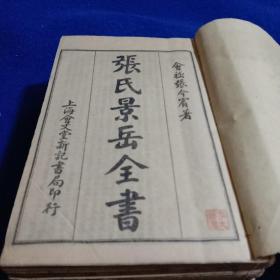 會稽張介賓著
張氏景岳全書
上海會文堂新記書局印行